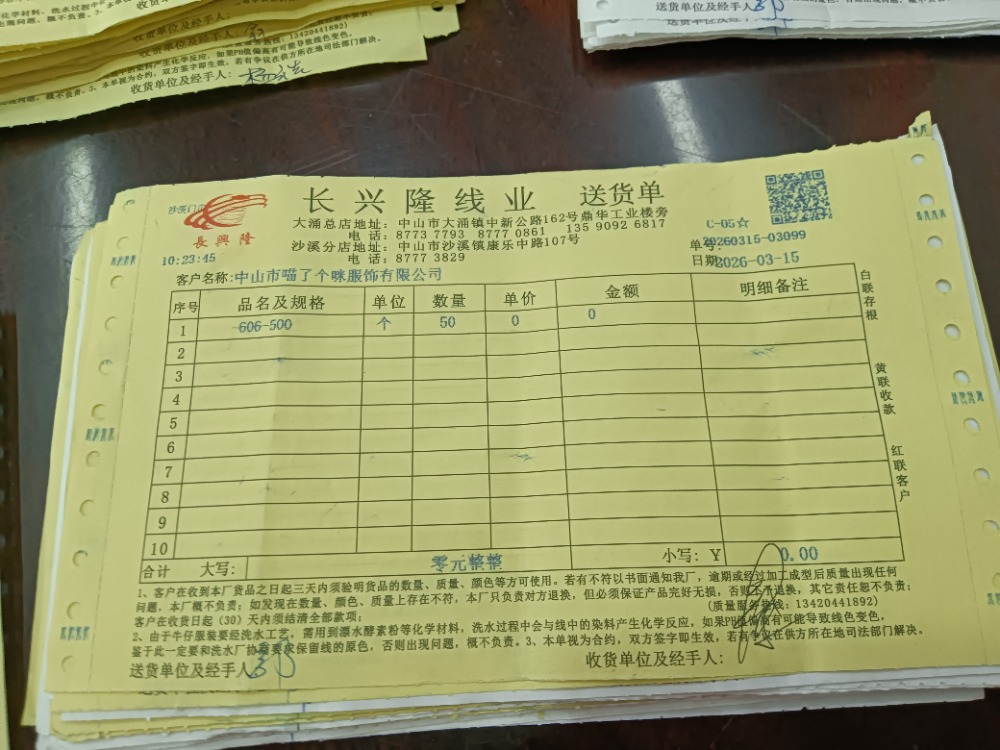 收货单位及经手人:
送货单位及经手人
收货单位及经手人:
概不负责。3、本单视为合约,双方签字即生效,若有争议在供方所在地司法部门解决。
收货单位及经手人:
沙溪门店
長興隆
长兴隆线业 送货单
大涌总店地址: 中山市大涌镇中新公路162号鼎华工业楼旁
电 话: 8773 7793 8777 0861 135 9092 6817
沙溪分店地址: 中山市沙溪镇康乐中路107号
电 话: 8777 3829
C-05☆
单号: 20260315-03099
日期 2026-03-15
10:23:45
客户名称:中山市喵了个咪服饰有限公司
序号 品名及规格 单位 数量 单价 金额 明细备注
1 -606-500 个 50 0 0
2
3
4
5
6
7
8
9
10
合计 大写: 零元整整 小写: Y 0.00
白联存根
黄联收款
红联客户
1、客户在收到本厂货品之日起三天内须验明货品的数量、质量、颜色等方可使用。若有不符以书面通知我厂,逾期或经过加工成型后质量出现任何
问题,本厂概不负责;如发现在数量、颜色、质量上存在不符,本厂只负责对方退换,但必须保证产品完好无损,否则不予退换,其它责任恕不负责;
客户在收货日起(30)天内须结清全部款项; (质量服务热线:13420441892)
2、由于牛仔服装要经洗水工艺,需用到漂水酵素粉等化学材料,洗水过程中会与线中的染料产生化学反应,如果PH值偏高有可能导致线色变色,
鉴于此一定要和洗水厂协商要求保留线的原色,否则出现问题,概不负责。3、本单视为合约,双方签字即生效,若有争议在供方所在地司法部门解决。
送货单位及经手人 收货单位及经手人: